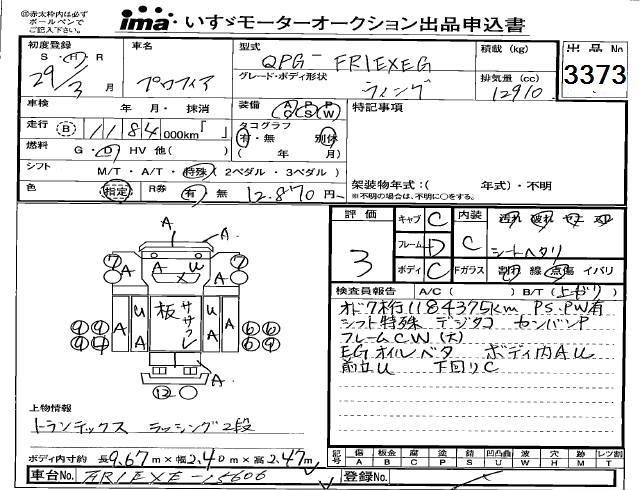 ㊟赤太枠内は必ず
ボールペンで
ご記入下さい。
ima・いすゞモーターオークション出品申込書
初度登録 車名 型式 積載(kg) 出品No
S・H・R QPG-FR1EXEG
29/3月 プロフィア グレード・ボディ形状 排気量(cc) 3373
ウィング 12910
車検 年 月・抹消 装備 AC PS PW 特記事項
走行 B 1184 000km「 」 タコグラフ 有・無 別体
燃料 G・D HV 他( ) ( 年 月)
シフト M/T・A/T・特殊(2ペダル・3ペダル) 架装物年式:( 年式)・不明
色 指定 R券 有 無 12.870円 ※不明の場合は、不明に○をする。
評価 3 キャブ C 内装 C
シートヘタリ
フレーム D
ボディ C Fガラス 割れ 線 点傷 イバリ
検査員報告 A/C( ) B/T(上がり)
オドメ7桁1184375km PS.PW有
シフト特殊 デジタコ センバンP
フレームCW(大)
EGオイルベタ ボディ内AU
前立U 下回りC
A
A
7 A A U A 7
9 9 A U A 板 ササクレ U A A 6 6
9 4 6 6
A
12
上物情報
トランテックス ラッシング2段
ボディ内寸約 長9.67m×幅2.40m×高2.47m
記号 傷 A 板金 B 腐 C 塗 P 錆 S 凹凸曲 U 波 W 穴 H 無 M レンズ割 T
車台No. FR1EXE-15606 登録No.